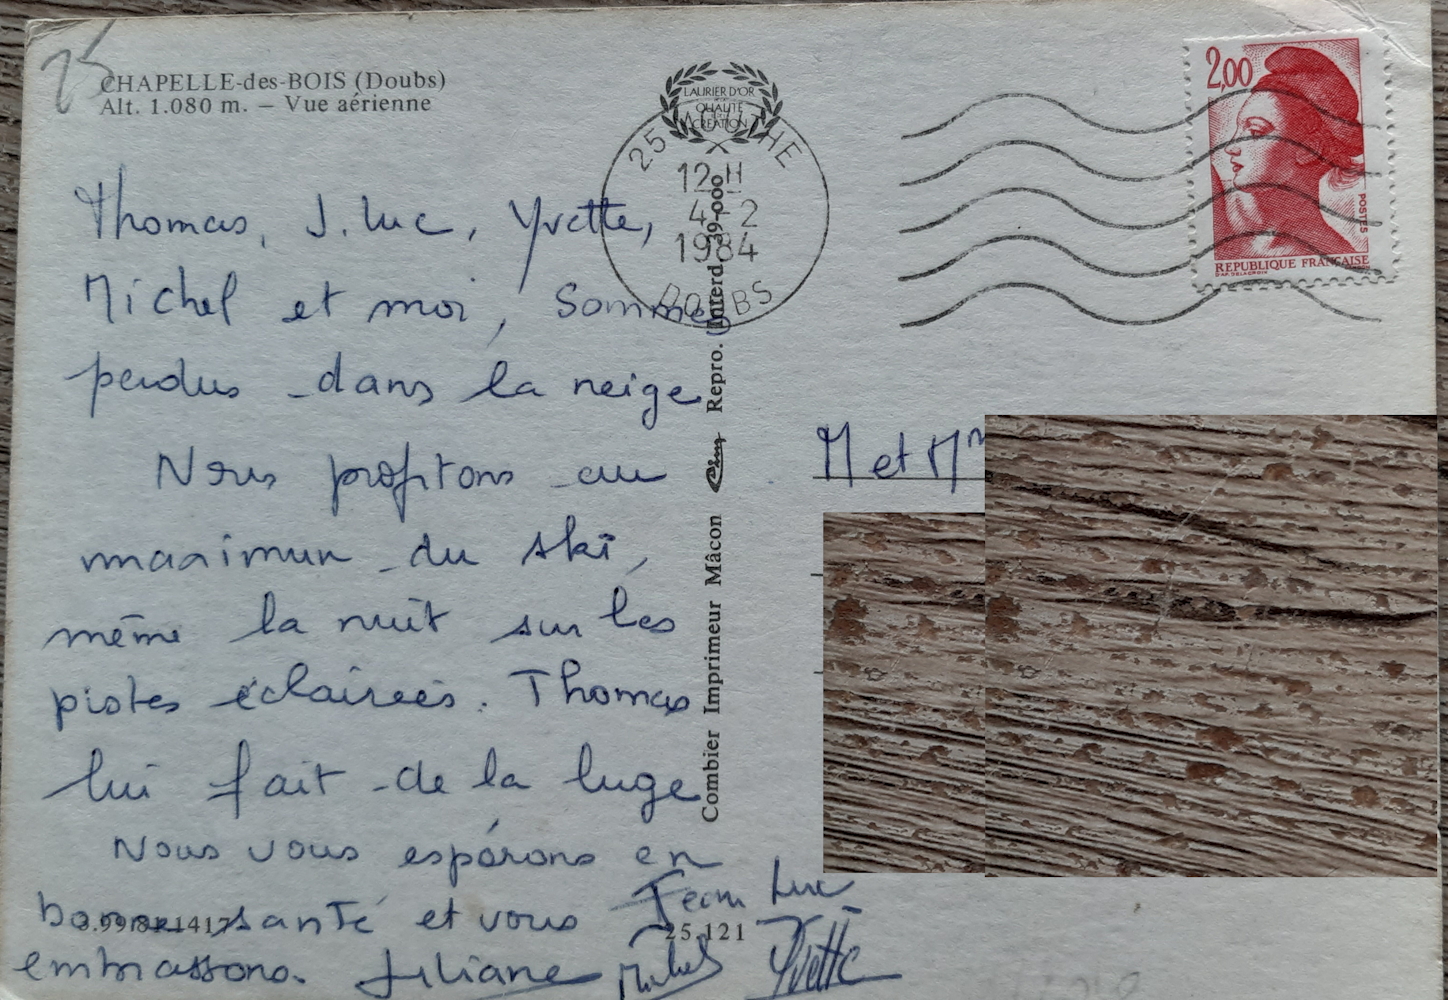 25
CHAPELLE-des-BOIS (Doubs)
Alt. 1.080 m. — Vue aérienne
Thomas, J. Luc, Yvette,
Michel et moi, Sommes
perdus dans la neige
Nous profitons au
maximum du ski,
même la nuit sur les
pistes éclairées. Thomas
lui fait de la luge
Nous vous espérons en
bonne santé et vous
embrassons. Liliane
Jean Luc
Michel Yvette
3.99.82.1417
25.121
Combier Imprimeur Mâcon Repro. Interd. 39-000
LAURIER D'OR
QUALITÉ
CRÉATION
25 MOUTHE
12 H
4-2
1984
DOUBS
2,00
POSTES
REPUBLIQUE FRANÇAISE
M et Mme